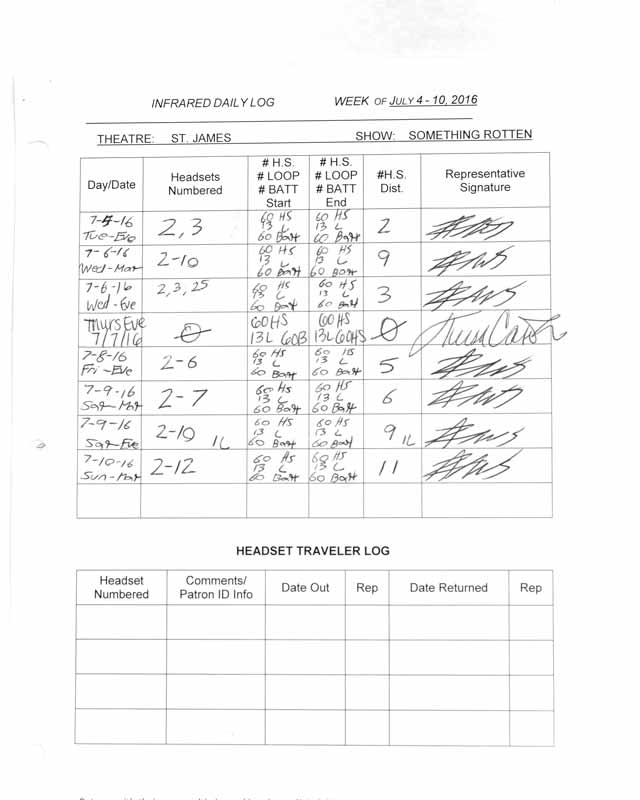 INFRARED DAILY LOG WEEK OF JULY 4 - 10, 2016
THEATRE: ST. JAMES SHOW: SOMETHING ROTTEN
Day/Date Headsets Numbered # H.S. # LOOP # BATT Start # H.S. # LOOP # BATT End #H.S. Dist. Representative Signature
7-5-16 Tue-Eve 2,3 60 HS 13 L 60 Batt 60 HS 13 L 60 Batt 2
7-6-16 Wed-Mat 2-10 60 HS 13 L 60 Batt 60 HS 13 L 60 Batt 9
7-6-16 Wed-Eve 2,3,25 60 HS 13 L 60 Batt 60 HS 13 L 60 Batt 3
Thurs Eve 7/7/16 0 60HS 13L 60B 60HS 13L 60HS 0
7-8-16 Fri-Eve 2-6 60 HS 13 L 60 Batt 60 HS 13 L 60 Batt 5
7-9-16 Sat-Mat 2-7 60 HS 13 L 60 Batt 60 HS 13 L 60 Batt 6
7-9-16 Sat-Eve 2-10 1L 60 HS 13 L 60 Batt 60 HS 13 L 60 Batt 9 1L
7-10-16 Sun-Mat 2-12 60 HS 13 L 60 Batt 60 HS 13 L 60 Batt 11
HEADSET TRAVELER LOG
Headset Numbered Comments/ Patron ID Info Date Out Rep Date Returned Rep